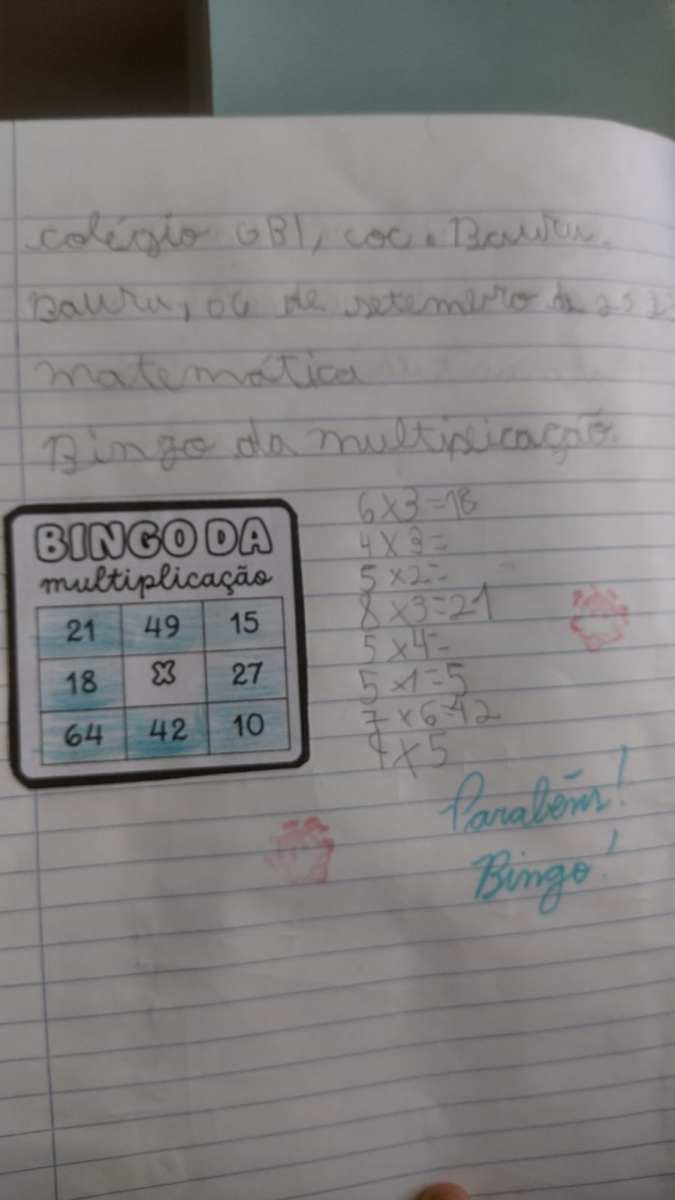 colégio GBI, coc. Bauru.
Bauru, 06 de setembro de
matemática
Bingo da multiplicação.
BINGO DA
multiplicação
21 49 15
18 X 27
64 42 10
6x3=18
4x3=
5x2=
8x3=21
5x4=
5x1=5
7x6=42
x5
Parabéns!
Bingo!